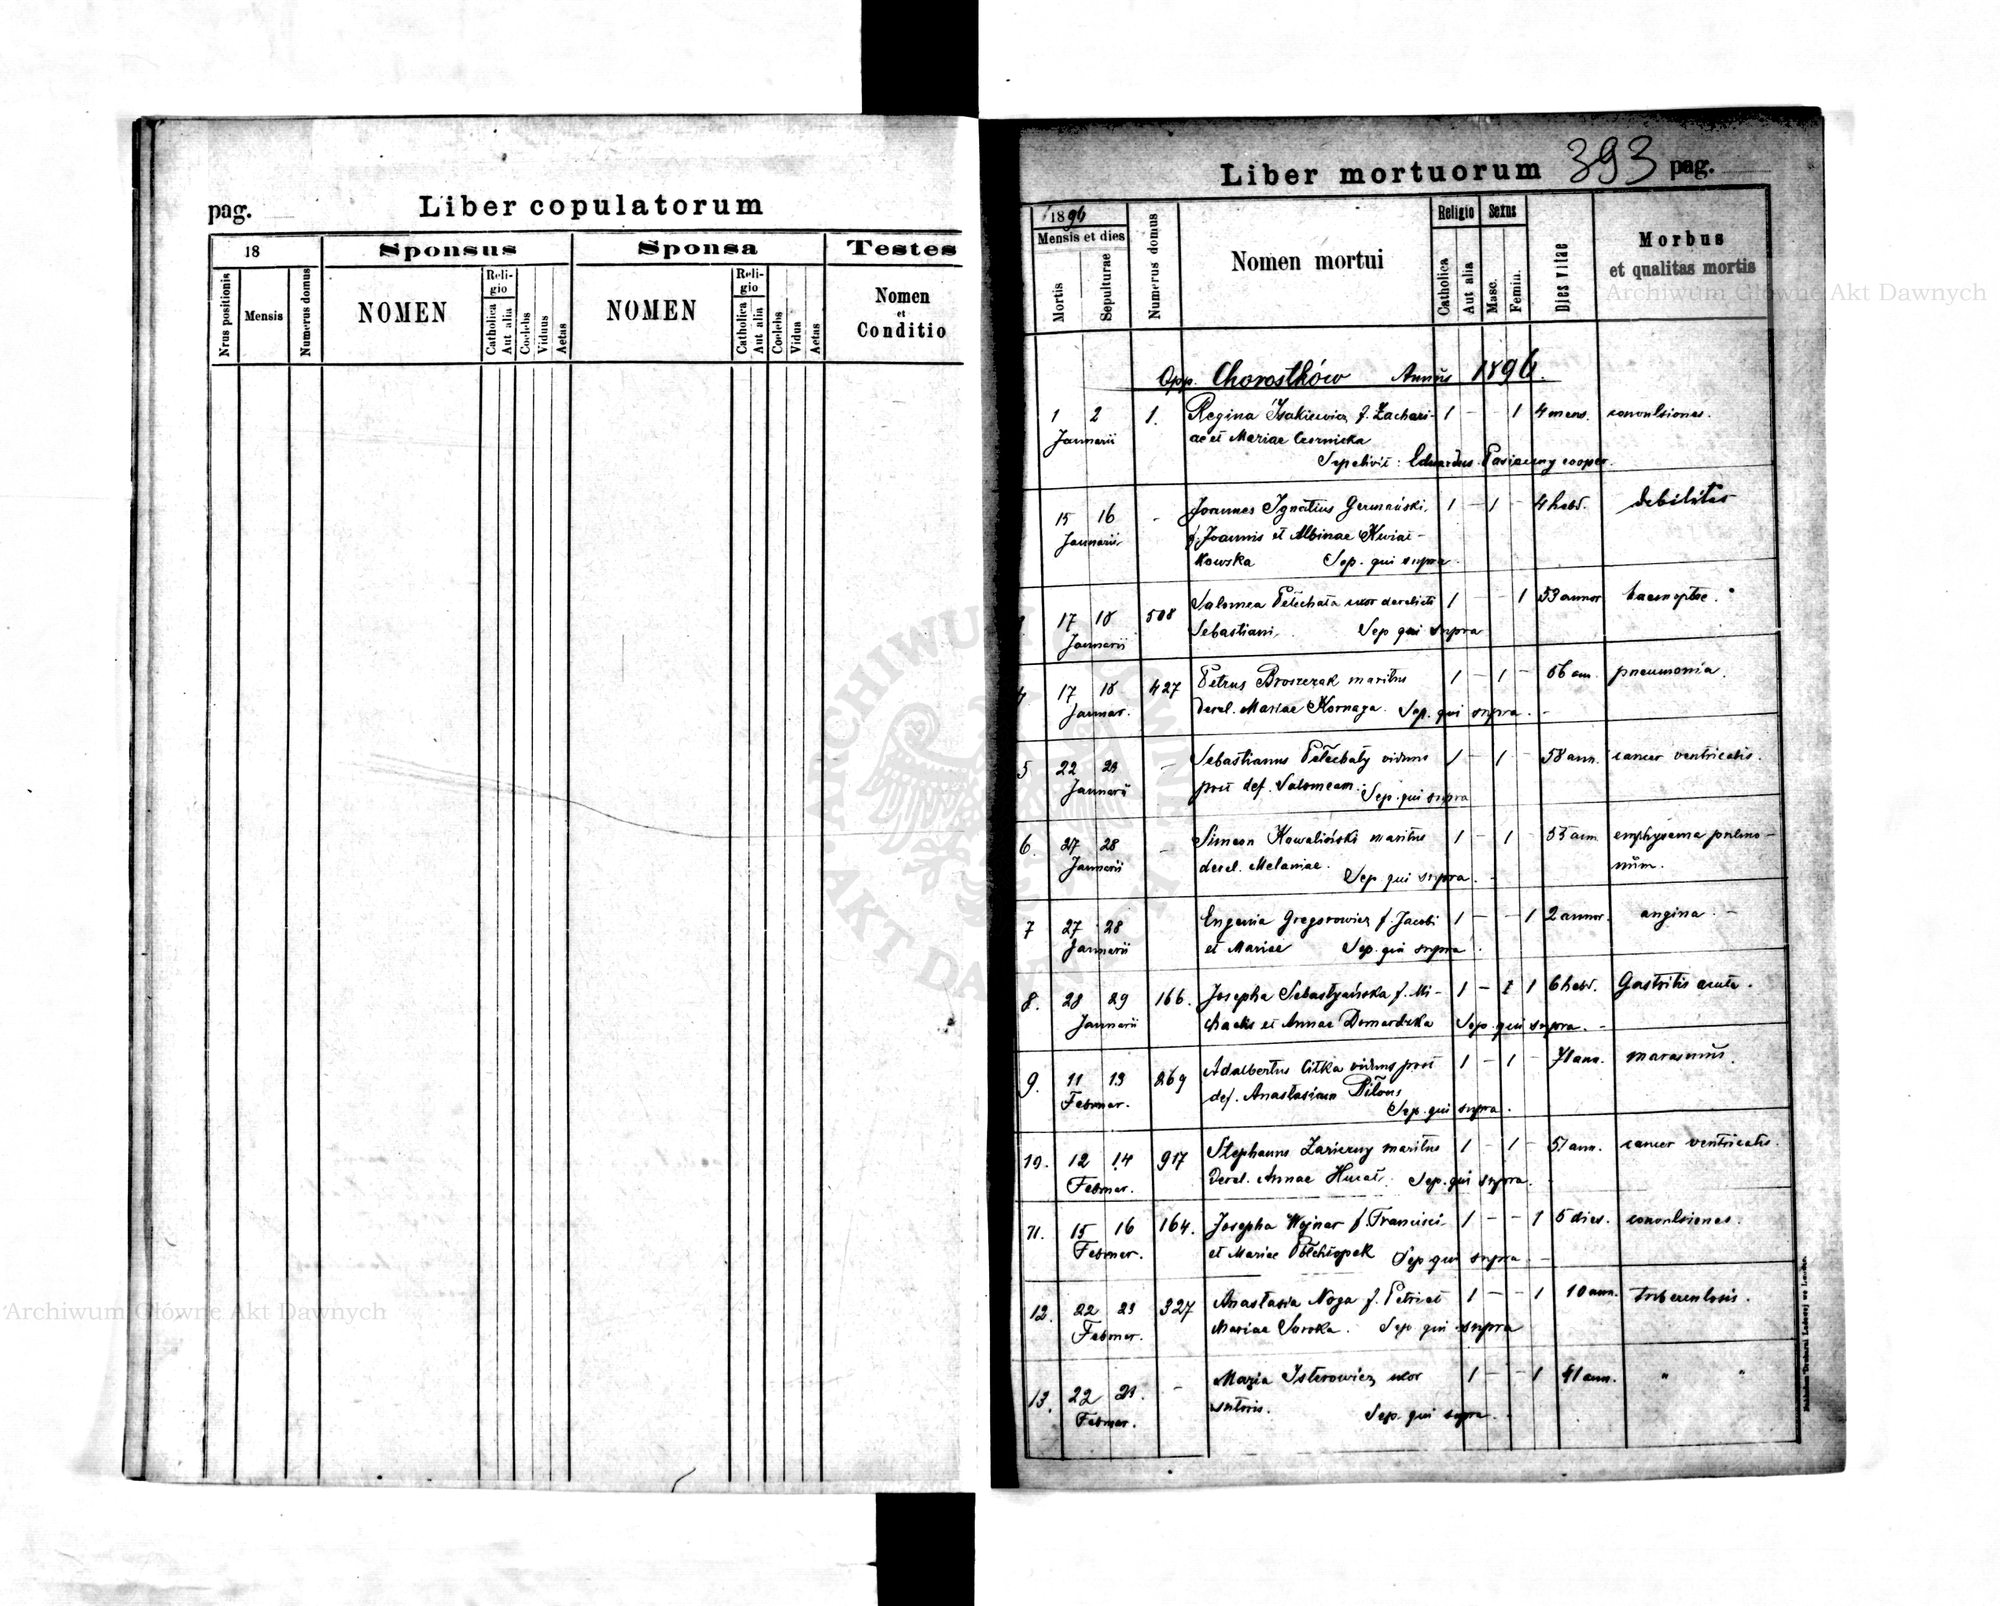 pag.
Liber copulatorum
18
Sponsus
Sponsa
Testes
Nrus positionis
Mensis
Numerus domus
NOMEN
Reli-
gio
Catholica
Aut alia
Coelebs
Viduus
Aetas
NOMEN
Reli-
gio
Catholica
Aut alia
Coelebs
Vidua
Aetas
Nomen
et
Conditio
Liber mortuorum 393 pag.
1896
Mensis et dies
Mortis
Sepulturae
Numerus domus
Nomen mortui
Religio
Catholica
Aut alia
Sexus
Masc.
Femin.
Dies vitae
Morbus
et qualitas mortis
Opp. Chorostków Annus 1896.
1 2 1. Regina Isakiewicz f. Zachari- 1 - 1 4 mens. convulsiones.
Januarii ae et Mariae Czernicka
Sepelivit: Eduardus cooper.
15 16 - Joannes Ignatius Germański 1 - 1 - 4 hebd. debilitas
Januarii f. Joannis et Albinae Kwiat-
kowska Sep. qui supra
17 18 508 Salomea Pełechata uxor derelicti 1 - - 1 53 annor haemoptoe.
Januarii Sebastiani. Sep qui supra
4 17 18 427 Petrus Broszczak maritus 1 - 1 - 56 ann. pneumonia.
Januar. derel. Mariae Kornaga. Sep. qui supra.
5 22 23 - Sebastianus Pełechaty viduus 1 - 1 - 58 ann. cancer ventriculis.
Januarii post def. Salomeam. Sep. qui supra
6. 27 28 - Simeon Kowaliński maritus 1 - 1 - 55 ann. emphysema pulmo-
Januarii derel. Melaniae. Sep. qui supra. num.
7 27 28 Eugenia Gregorowicz f. Jacobi 1 - - 1 2 annor. angina. -
Januarii et Mariae Sep. qui supra.
8. 28 29 166. Josepha Sebastyańska f. Mi- 1 - 1 6 hebd. Gastritis acuta.
Januarii chaelis et Annae Domardzka Sep. qui supra. -
9. 11 13 269 Adalbertus Citka viduus post 1 - 1 - 71 ann. marasmus.
Februar. def. Anastasiam
Sep. qui supra.
10. 12 14 917 Stephanus Zarieczny maritus 1 - 1 - 51 ann. cancer ventriculis.
Februar. Derel. Annae Sep. qui supra.
11. 15 16 164. Josepha Wojnar f. Francisci 1 - - 1 5 dies. convulsiones.
Februar. et Mariae Półchłopek Sep qui supra -
12. 22 23 327 Anastasia Noga f. Petri et 1 - - 1 10 ann. tuberculosis.
Februar. Mariae Soroka. Sep. qui supra
13. 22 23. - Maria uxor 1 - - 1 41 ann. " "
Februar. sutoris. Sep. qui supra.
Archiwum Główne Akt Dawnych
Archiwum Główne Akt Dawnych
ARCHIWUM GŁÓWNE AKT DAWNYCH